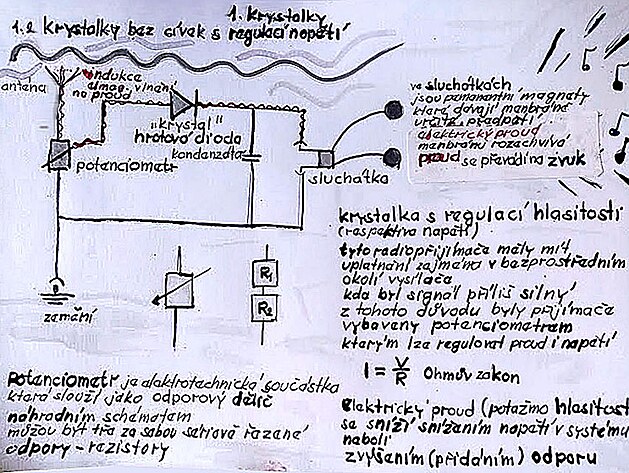 1. krystalky
1.2 krystalky bez cívek s regulací napětí
antena
indukce
elmag. vlnění
na proud
"krystal"
hrotová dioda
kondenzátor
potenciometr
sluchátka
zemnění
R1
R2
ve sluchátkách
jsou permanentní magnety
které dávají membráně
určité předpětí
elektrický proud
membránu rozechvívá
proud se převádí na zvuk
krystalka s regulací hlasitosti
(respektive napětí)
tyto radiopřijímače měly mít
uplatnění zejména v bezprostředním
okolí vysílače
kde byl signál příliš silný
z tohoto důvodu byly přijímače
vybaveny potenciometrem
kterým lze regulovat proud i napětí
I = V/R Ohmův zákon
elektrický proud (potažmo hlasitost
se sníží snížením napětí v systému
neboli
zvýšením (přidáním) odporu
potenciometr je elektrotechnická součástka
která slouží jako odporový dělič
náhradním schématem
můžou být třeba za sebou seriově řazené
odpory - rezistory